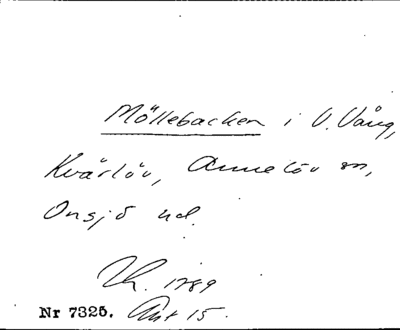 Möllebacken i V. Vång,
Kvärlöv, Annelöv sn,
Onsjö hd.
Lk. 1789
Nr 7325. Akt 15.